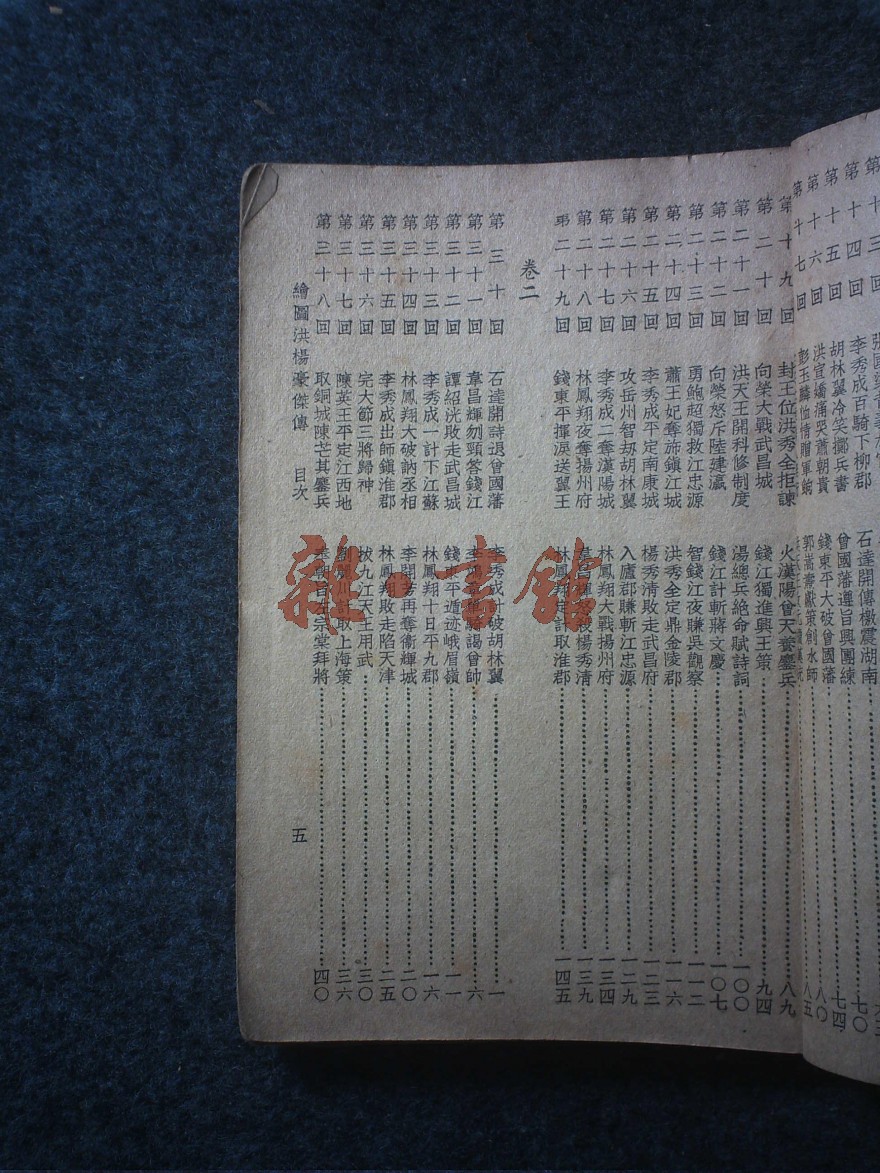 李秀成百騎下柳郡 石達開傳檄震湖南 七〇
第十四回 胡林翼冷笑擲兵書 曾國藩遵旨興團練 七四
第十五回 洪宣嬌痛哭蕭朝貴 錢東平大破曾國藩 八〇
第十六回 彭玉麟恤情贈軍餉 郭嵩燾獻策創水師 八五
第十七回
第十九回 封王位洪秀全拒諫 火漢陽曾天養鏖兵 八九
第二十回 向榮大戰武昌城 錢江獨進興王策 九四
第二十一回 洪天王開科修制度 湯總兵絕命賦詩詞 一〇〇
第二十二回 向榮怒斥陸建瀛 錢江計斬蔣文慶 一〇七
第二十三回 勇鮑超獨救江忠源 智錢江夜賺吳觀察 一一二
第二十四回 蕭王妃奪旆鎭江城 洪秀全定鼎金陵郡 一一六
第二十五回 李秀成平定南康城 楊秀清敗走武昌府 一二三
第二十六回 攻岳州智劫胡林翼 入廬郡賺斬江忠源 一二九
第二十七回 李秀成二奪漢陽城 林鳳翔大戰揚州府 一三四
第二十八回 林鳳翔夜奪揚州府 韋昌輝怒殺楊秀清 一三九
第二十九回 錢東平揮淚送翼王 林鳳翔定計取淮郡 一四五
卷二
第三十回 石達開詩退曾國藩 李秀成計破胡林翼 一
第三十一回 韋昌輝刎頸答錢江 李鴻章單騎謁曾帥 六
第三十二回 譚紹洸敗走武昌城 錢東平遁迹峨眉嶺 一一
第三十三回 李秀成一計下江蘇 林鳳翔十日平九郡 一六
第三十四回 林鳳翔大破訥丞相 李開芳再奪衞輝城 二〇
第三十五回 李秀成出師鎭淮郡 林鳳翔敗走陷天津 二五
第三十六回 完大節三將歸神 拔九江天王用武 三〇
第三十七回 陳英王平定江西地 劉麗川計取上海策 三六
第三十八回 取銅城陳芒其鏖兵 奉朝旨左宗棠拜將 四〇
繪圖洪楊豪傑傳 目次 五
雜·書館